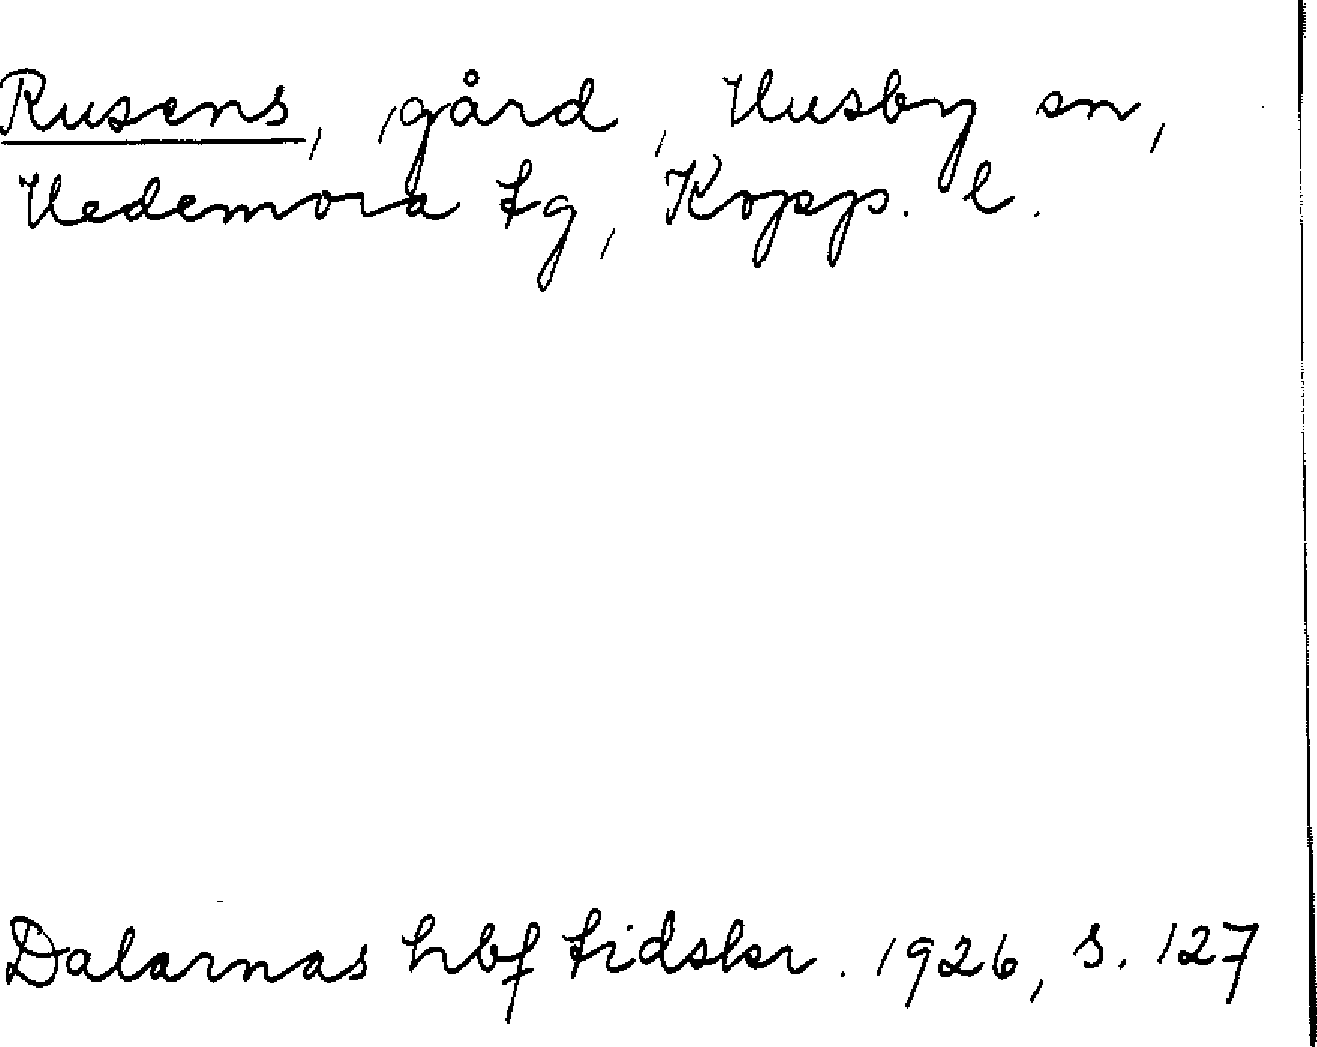 Rusens, gård, Husby sn,
Hedemora tg, Kopp. l.
Dalarnas hbf tidskr. 1926, s. 127